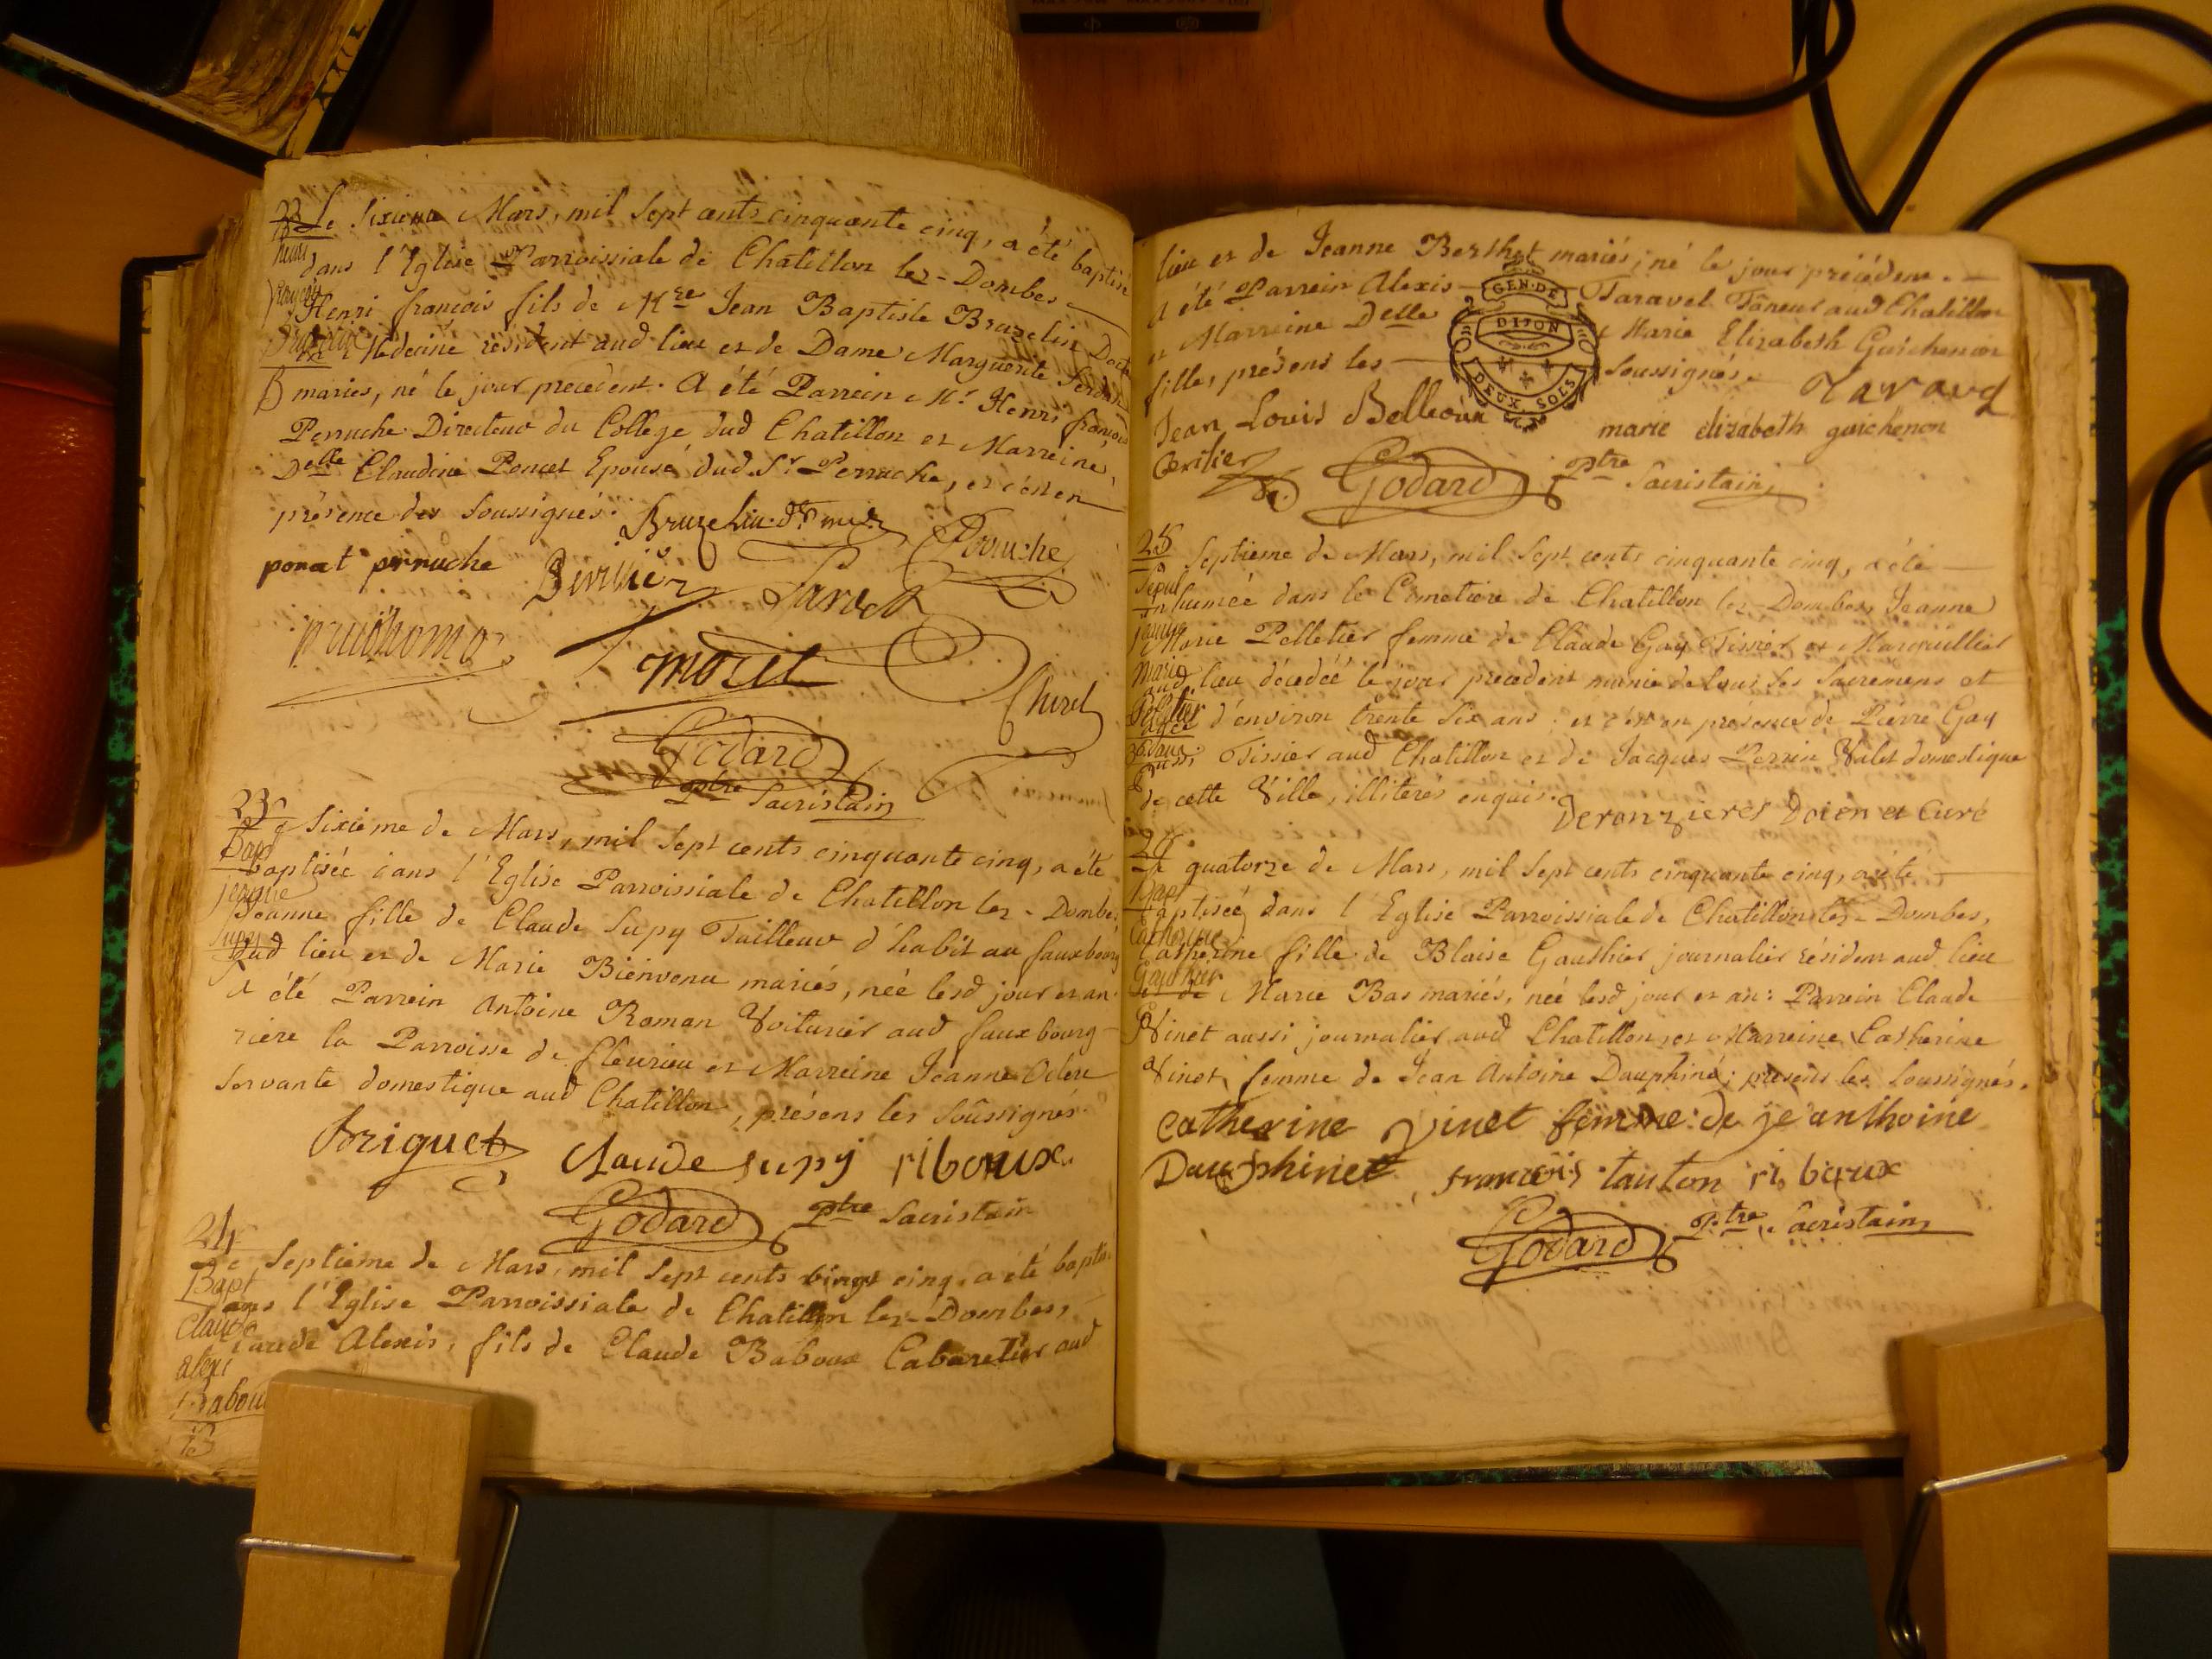 22 Le Sixieme Mars, mil Sept cents cinquante cinq, a été baptisé
henri dans l'Eglise Parroissiale de Chatillon lez-Dombes
françois Henri françois fils de Mre Jean Baptiste Bruzelin Doct
en Medecine résident aud lieu et de Dame Marguerite
mariés, né le jour precedent. A été Parrein Mr Henri françois
Perruche Directeur du College dud Chatillon et Marreine,
Delle Claudine Poncet Epouse dud Sr Perruche, et c'est en
présence des Soussignés.
ponset perruche
prudhomo
moret
Churel
Godard
Ptre Sacristain
23
Bapt Sixième de Mars, mil Sept cents cinquante cinq, a été
baptisée dans l'Eglise Parroissiale de Chatillon lez-Dombes
jeanne
Jeanne fille de Claude Supy Tailleur d'habit au fauxbourg
Supy
dud lieu et de Marie Bienvenu mariés, née lesd jour et an.
A été Parrein Antoine Roman Voiturier aud fauxbourg
rière la Parroisse de fleurieu et Marreine Jeanne
Servante domestique aud Chatillon, présens les Soussignés.
Briguet Claude supy riboux
Godard Ptre Sacristain
24
Le Septième de Mars, mil Sept cents vingt cinq, a été baptisé
Bapt
dans l'Eglise Parroissiale de Chatillon lez-Dombes,
Claude
Claude Alexis, fils de Claude Baboux Cabaretier aud
alexi
Baboux
lieu et de Jeanne Berthet mariés, né le jour précédent.
A été Parrein Alexis Taravel Tâneur aud Chatillon
et Marreine Delle Marie Elizabeth Guichenon
fille, présens les Soussignés.
GEN. DE
DIJON
DEUX SOLS
Jean Louis
marie elizabeth guichenon
Godard Ptre Sacristain
25
Septieme de Mars, mil Sept cents cinquante cinq, a été
Sepul
inhumée dans le Cimetiere de Chatillon lez-Dombes, Jeanne
jeanne
Marie Pelletier femme de Claude Gay Tissier et Marguillier
marie
aud lieu décedée le jour precedent munie de tous ses Sacremens et
Pelletier
agée d'environ trente Six ans. et c'est en présence de Pierre Gay
36 ans
aussi Tissier aud Chatillon et de Jacques Perrin Valet domestique
de cette Ville, illiterés enquis. Deronzieres Doien et Curé
26
Le quatorze de Mars, mil Sept cents cinquante cinq, a été
Bapt
baptisée dans l'Eglise Parroissiale de Chatillon lez-Dombes,
Catherine
Catherine fille de Blaise Gauthier journalier résident aud lieu
Gauthier
et de Marie Bas mariés, née lesd jour et an: Parrein Claude
Vinet aussi journalier aud Chatillon, et Marreine Catherine
Vinet, femme de Jean Antoine Dauphiné; présens les Soussignés.
catherine vinet femme de jeanthoine
Dauphinet françois tauton riboux
Godard Ptre Sacristain